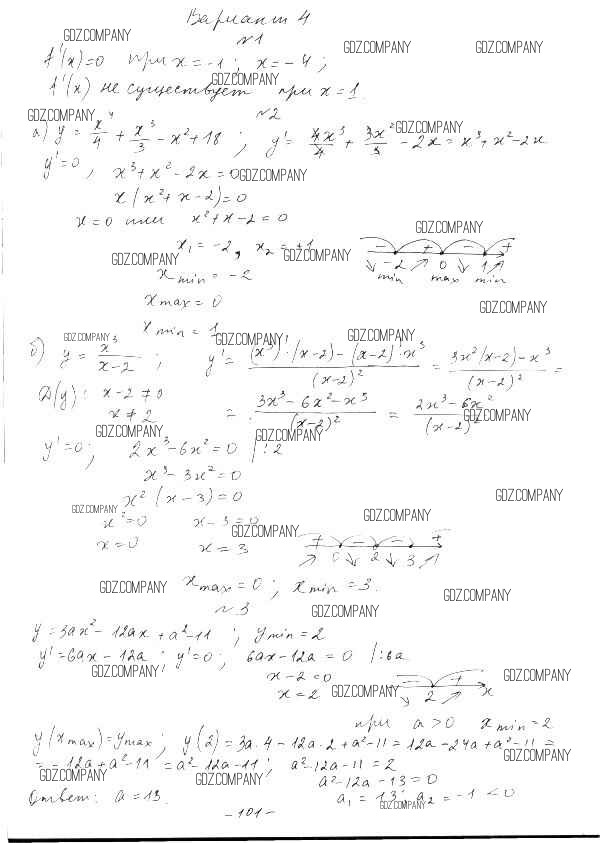 Вариант 4
GDZ.COMPANY
№1
GDZ.COMPANY GDZ.COMPANY
f'(x)=0 при x=-1; x=-4;
GDZ.COMPANY
f'(x) не существует при x=1.
GDZ.COMPANY
№2
а) y = x⁴/4 + x³/3 - x² + 18; y' = 4x³/4 + 3x²/3 - 2x = x³ + x² - 2x
GDZ.COMPANY
y'=0, x³ + x² - 2x = 0
GDZ.COMPANY
x(x² + x - 2) = 0
x=0 или x² + x - 2 = 0
GDZ.COMPANY
x₁ = -2, x₂ = +1
- + - +
GDZ.COMPANY GDZ.COMPANY
-2 0 1
min max min
x min = -2
x max = 0
GDZ.COMPANY
x min = 1
GDZ.COMPANY GDZ.COMPANY GDZ.COMPANY
б) y = x³/(x-2); y' = ((x³)'·(x-2) - (x-2)'·x³)/(x-2)² = (3x²(x-2) - x³)/(x-2)² =
D(y): x-2≠0
x≠2
= (3x³ - 6x² - x³)/(x-2)² = (2x³ - 6x²)/(x-2)²
GDZ.COMPANY
GDZ.COMPANY GDZ.COMPANY
y'=0; 2x³ - 6x² = 0 |:2
x³ - 3x² = 0
x²(x-3) = 0
GDZ.COMPANY
GDZ.COMPANY GDZ.COMPANY
x²=0 x-3=0
GDZ.COMPANY
x=0 x=3
+ - - +
0 2 3
x max = 0; x min = 3.
GDZ.COMPANY GDZ.COMPANY
№3
GDZ.COMPANY
y = 3ax² - 12ax + a² - 11; y min = 2
y' = 6ax - 12a; y'=0; 6ax - 12a = 0 |:6a
GDZ.COMPANY GDZ.COMPANY
x-2=0
x=2
GDZ.COMPANY
- +
2 x
при a>0 x min = 2
y(x max) = y max; y(2) = 3a·4 - 12a·2 + a² - 11 = 12a - 24a + a² - 11 =
GDZ.COMPANY
= -12a + a² - 11 = a² - 12a - 11; a² - 12a - 11 = 2
GDZ.COMPANY GDZ.COMPANY
a² - 12a - 13 = 0
Ответ: a = 13. a₁ = 13; a₂ = -1 < 0
GDZ.COMPANY
-101-